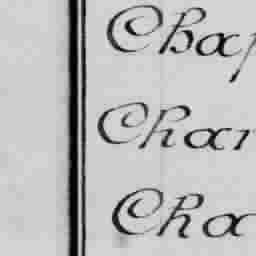 Chap
Char
Cha